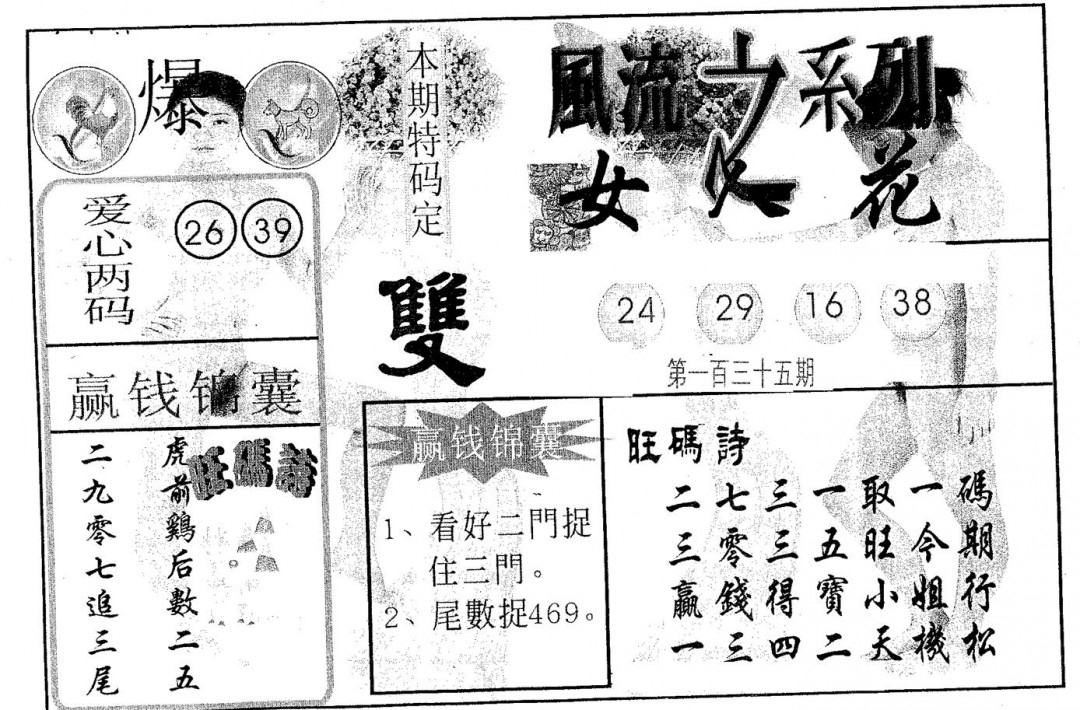 爆
爱心两码
26 39
赢钱锦囊
旺碼詩
虎前鷄后數二五
二九零七追三尾
本期特码定
雙
風流之系列
女花
24 29 16 38
第一百三十五期
赢钱锦囊
1、看好二門捉
住三門。
2、尾數捉469。
旺碼詩
二七三一取一碼
三零三五旺今期
贏錢得寶小姐行
一三四二天機松